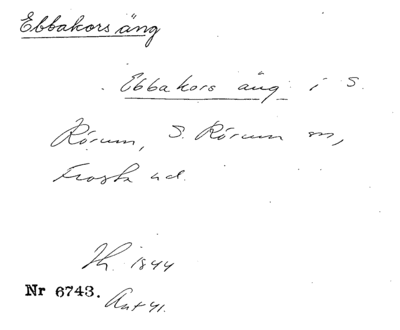 Ebbakors äng
Ebbakors äng i S.
Rörum, S. Rörum sn,
Frosta hd.
Th. 1844
Nr 6743.
Ant 41.